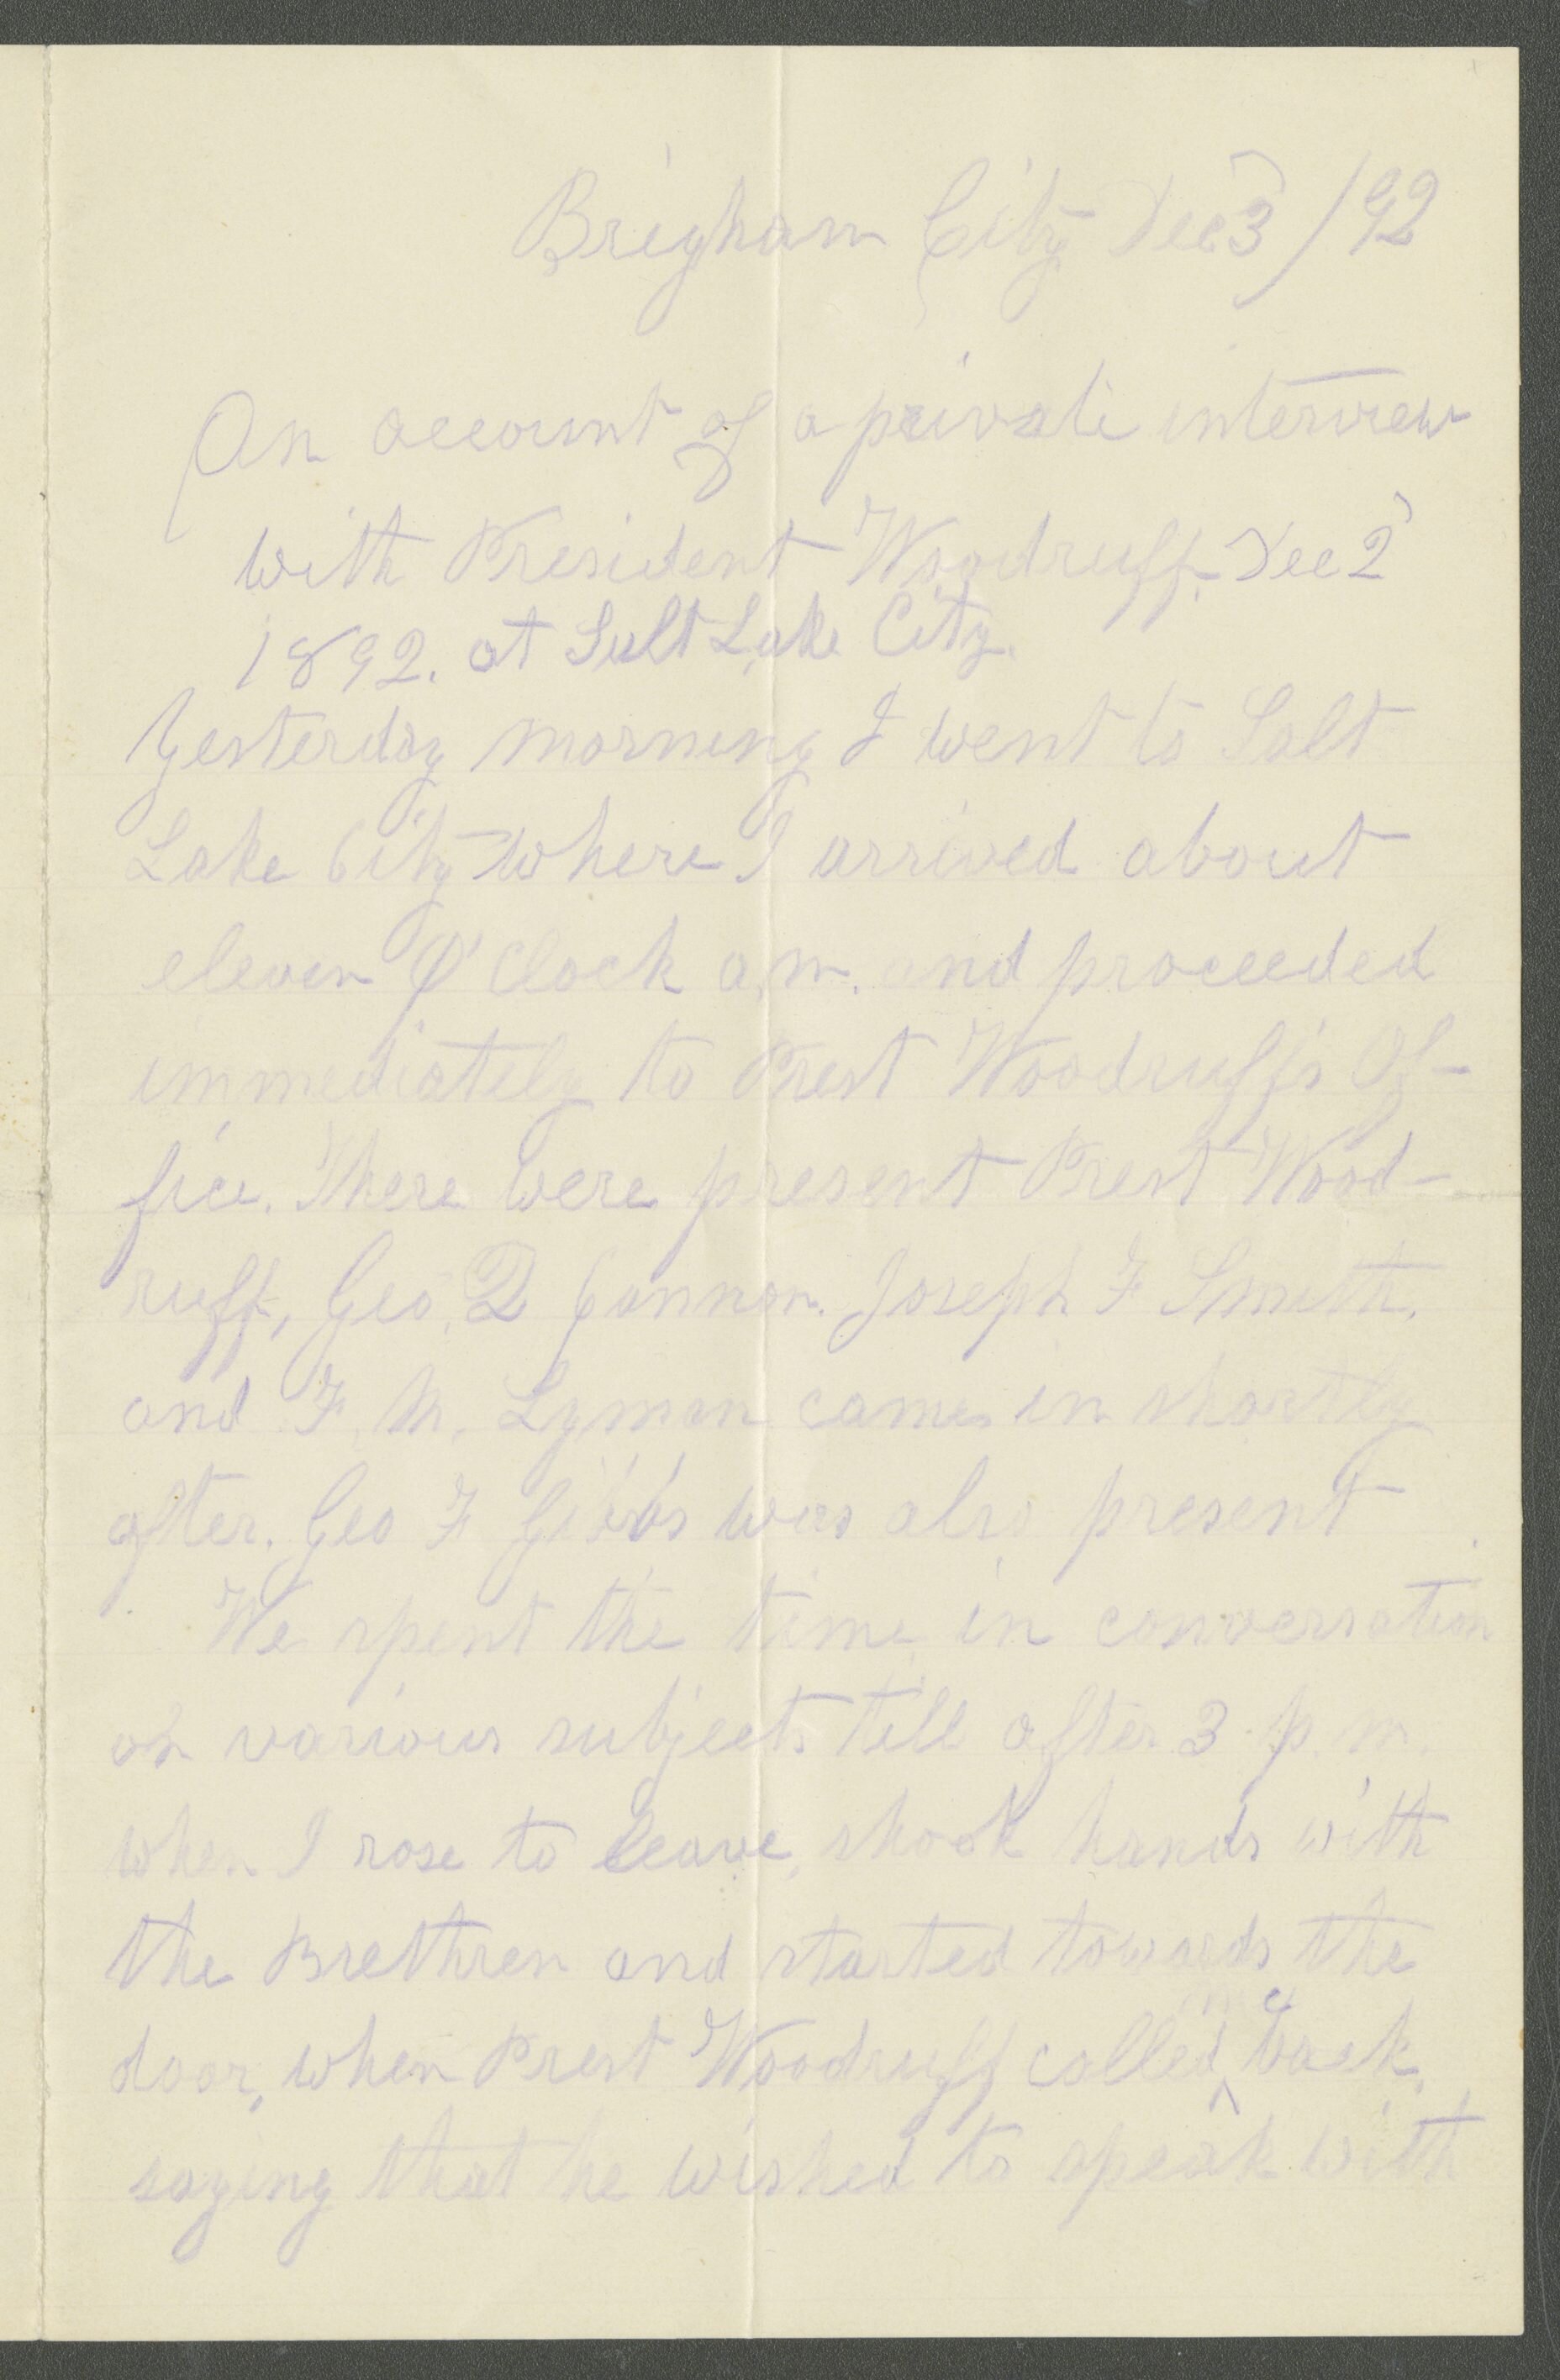 Brigham City Dec 3 / 92
An account of a private interview
with President Woodruff. Dec 2
1892. at Salt Lake City.
Yesterday morning I went to Salt
Lake City where I arrived about
eleven O'Clock a,m. and proceeded
immediately to Prest Woodruff's Of-
fice. There were present Prest Wood-
ruff, Geo. Q Cannon. Joseph F Smith.
and F. M. Lyman came in shortly
after. Geo F Gibbs was also present
We spent the time in conversation
on various subjects till after 3 p. m.
when I rose to leave, shook hands with
the Brethren and started towards the
door, when Prest Woodruff called ^me back,
saying that he wished to speak with